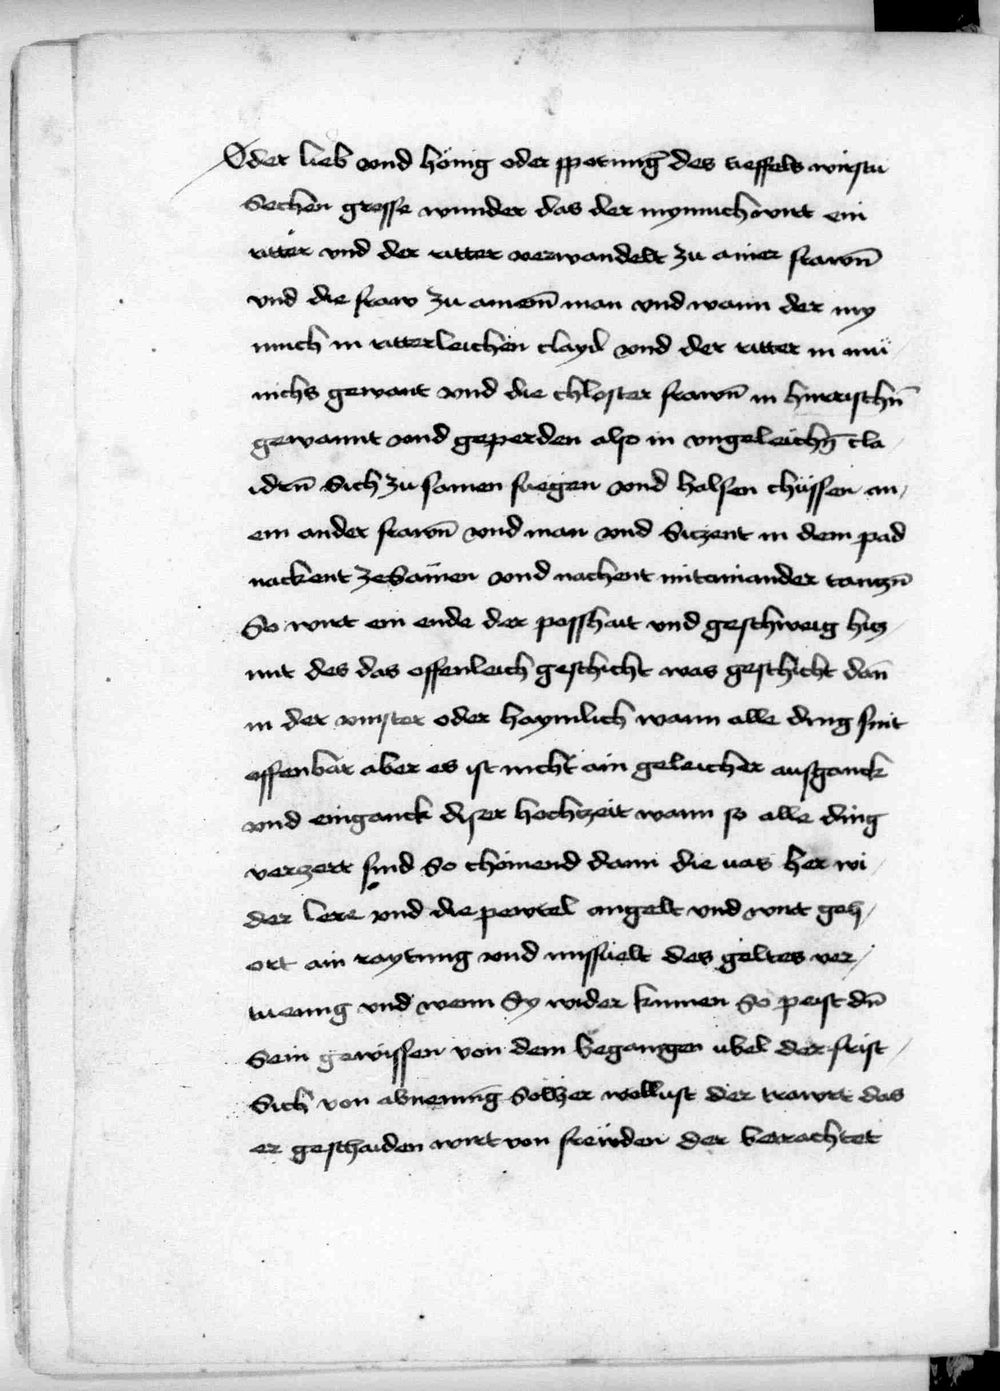 Oder lieb vnd hönig oder sporung des tieffels wirstu
Sechen grosse wunder das der mynnich wirt ein
ritter vnd der ritter verwandelt zu ainer frawn̄
vnd die fraw zu ainem̄ man vnd wann der my
nnich in ritterleichen clayd vnd der ritter in mü
nichs gewant vnd die chloster frawn̄ in hurrischn̄
gewannt vnd geperden also in vngeleichn̄ cla
idrn̄ Sich zu samen fuegen vnd halsen chüssen an
ein ander frawn̄ vnd man vnd Siczent in dem pad
nackent zeSamen vnd nachent mitainander tanczn̄
So wirt ein ende der posshait vnd geschweig hie
mit des das offenleich geschicht was geschicht dan̄
in der vinster oder haymlich wann alle ding sint
offenbar aber es ist nicht ain geleicher ausganck
vnd einganck diser hochtzeit wann so alle ding
verzert sind So chömend dann die uas her wi
der lere vnd die pewtel angelt vnd wirt geh
ort ain raytung vnd missuelt des geltes ver
tueung vnd wenn Sy wider kumen So peist dn̄
Sein gewissen von dem begangen ubel der frist
Sich von abnemung Solher wollust der trawrt das
er geschaiden wirt von frewden der betrachtet